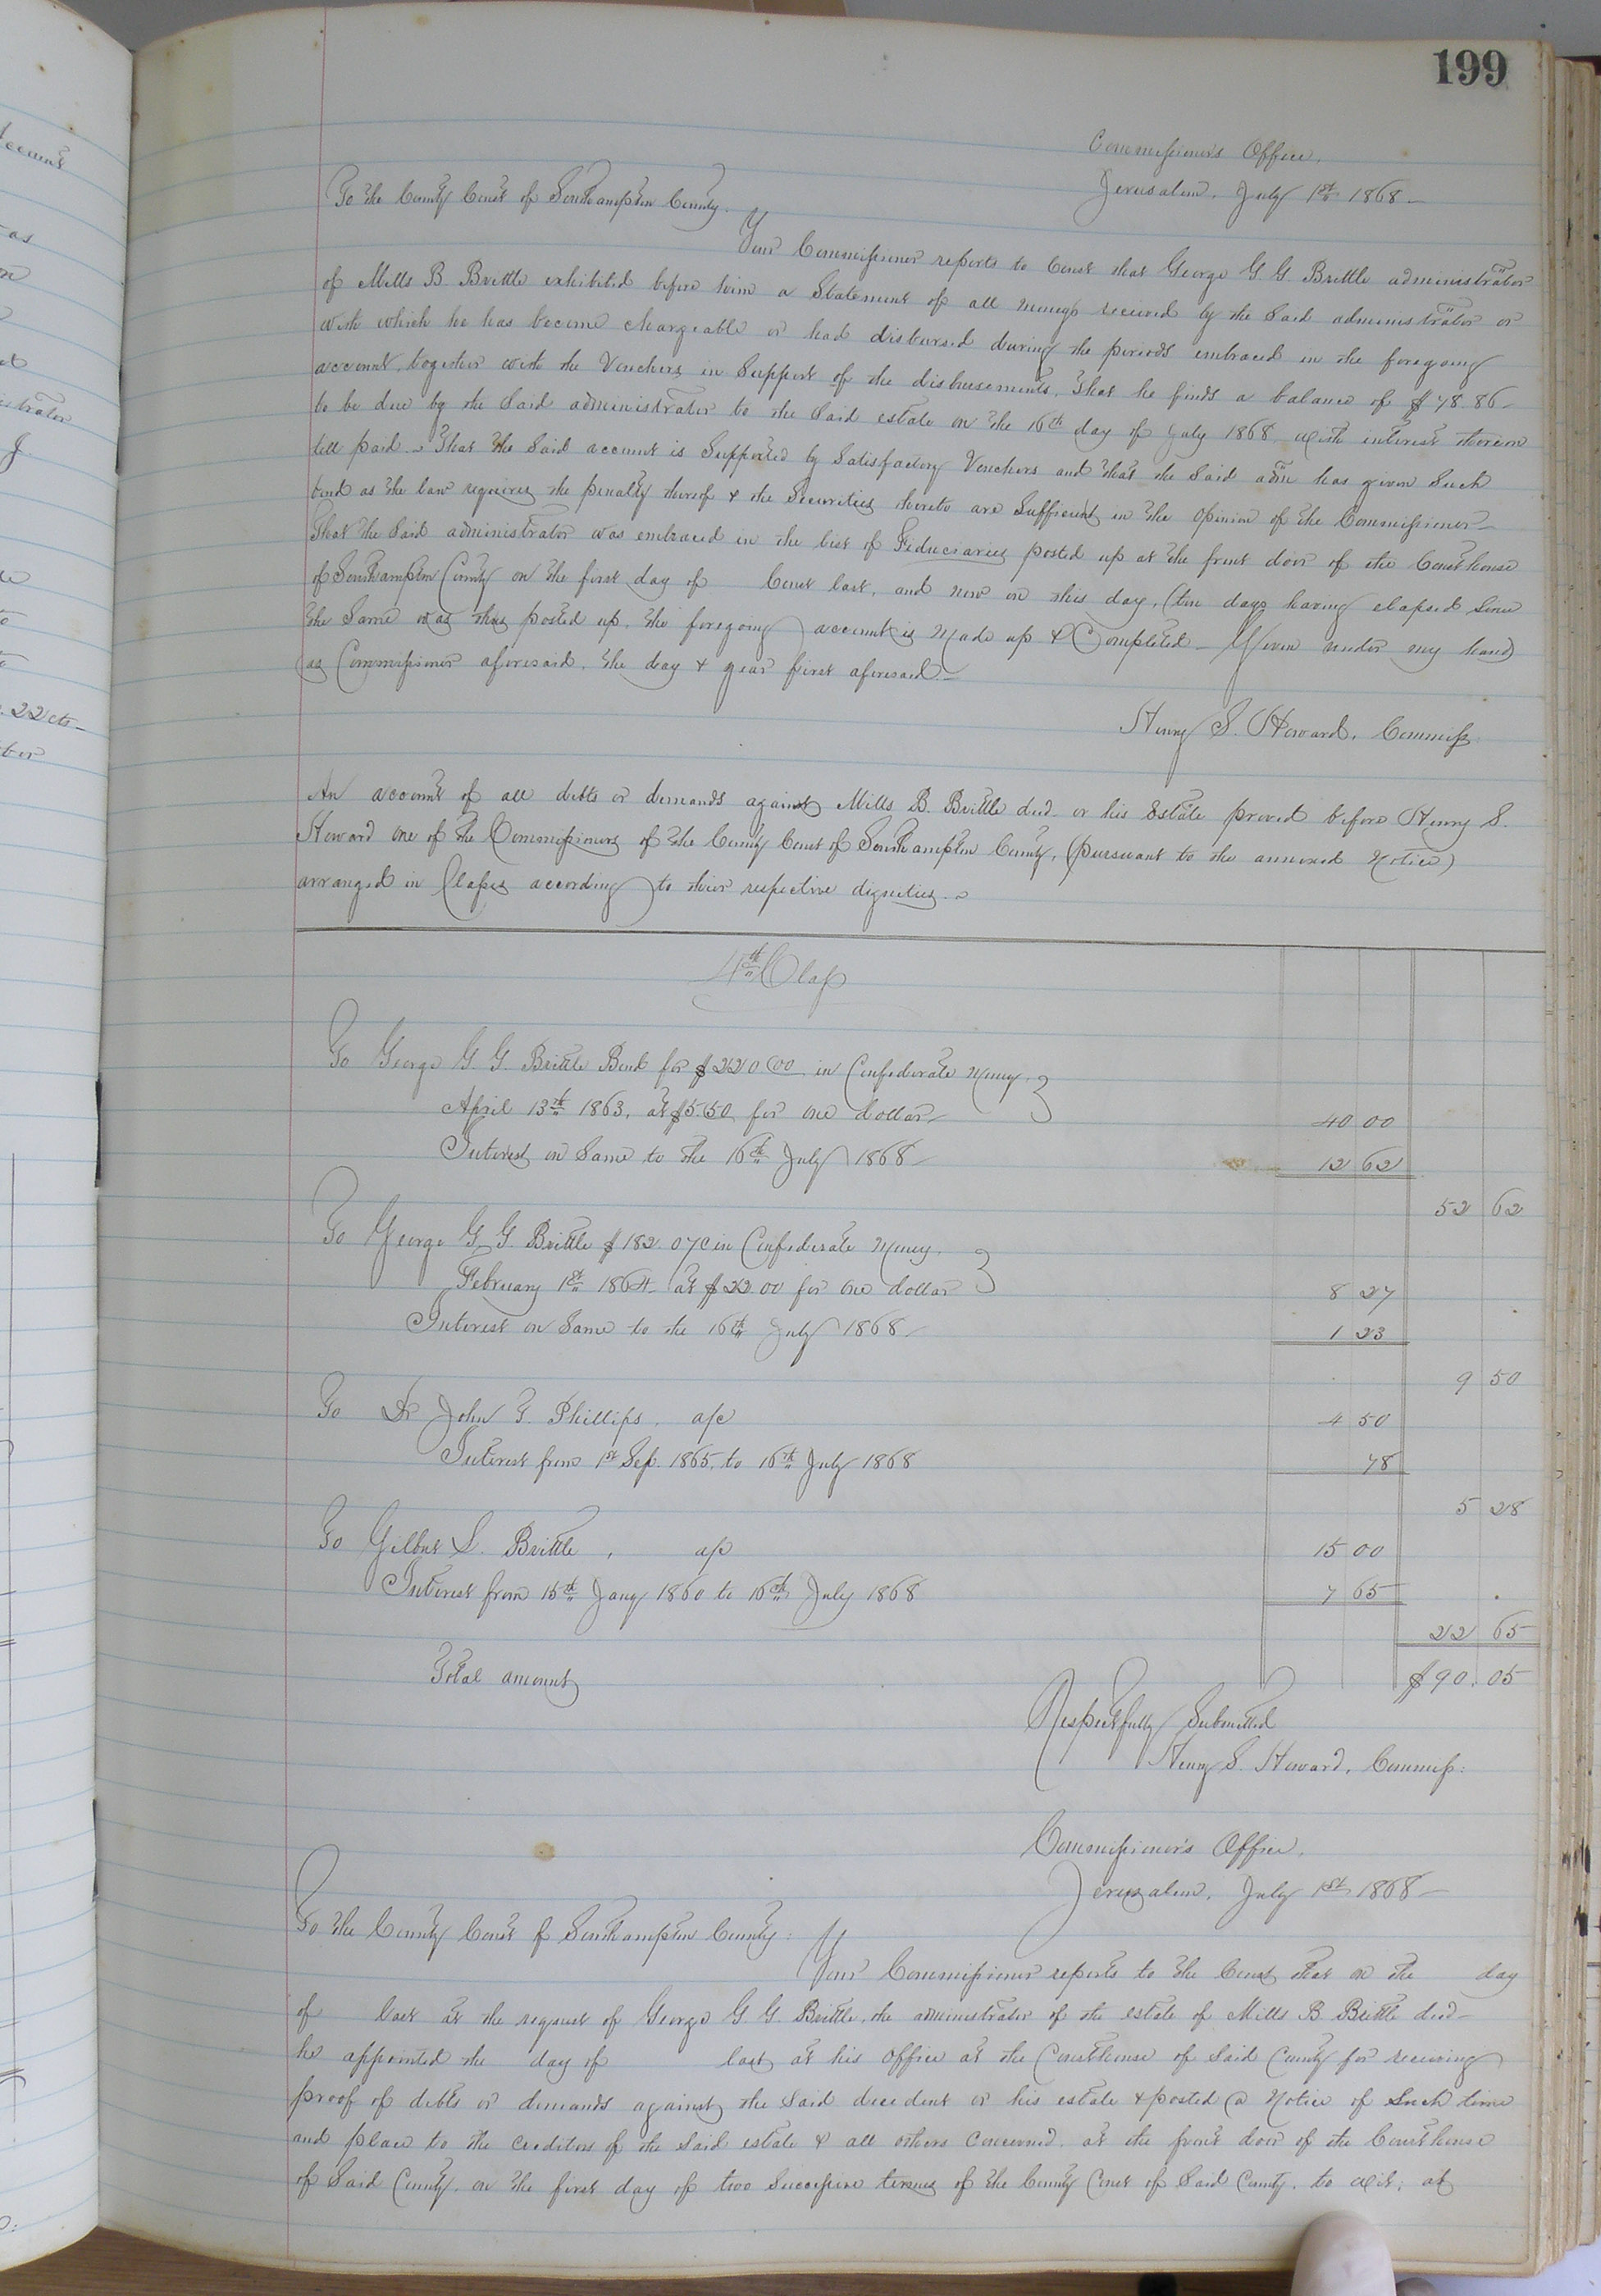 199
Commissioner's Office,
Jerusalem, July 1st 1868
To the County Court of Southampton County.
Your Commissioner reports to Court that George G. G. Brittle administrator
of Mills B. Brittle exhibited before him a Statement of all moneys received by the Said administrator or
with which he has become chargeable or had disbursed during the periods embraced in the foregoing
account, together with the Vouchers in Support of the disbursements, That he finds a balance of $78.86
to be due by the Said administrator to the Said estate on the 16th day of July 1868, with interest thereon
till paid. That the Said account is Supported by Satisfactory Vouchers and that the Said admr has given Such
bond as the law requires the penalty thereof & the Securities thereto are Sufficient in the opinion of the Commissioner
That the Said administrator was embraced in the list of Fiduciaries posted up at the front door of the Courthouse
of Southampton County on the first day of Court last, and now on this day, (ten days having elapsed Since
the Same was thus posted up, the foregoing account is Made up & Completed Given under my hand
as Commissioner aforesaid, the day & year first aforesaid.
Henry S. Howard, Commiss.
An account of all debts or demands against Mills B. Brittle decd. or his Estate proved before Henry S.
Howard one of the Commissioners of the County Court of Southampton County, (pursuant to the annexed Notice)
arranged in Classes according to their respective dignities.
4th Class
To George G. G. Brittle Bond for $220.00 in Confederate Money.
April 13th 1863, at $5.50 for one dollar 40 00
Interest on Same to the 16th July 1868 12 62
52 62
To George G. G. Brittle $182.07c in Confederate Money.
February 1st 1864 at $22.00 for one dollar 8 27
Interest on Same to the 16th July 1868 1 23
9 50
To Dr John T. Phillips, a/c 4 50
Interest from 1st Sep. 1865, to 16th July 1868 78
5 28
To Gilbert S. Brittle, a/c 15 00
Interest from 15th Jany 1860 to 16th July 1868 7 65
22 65
Total amount $90.05
Respectfully Submitted
Henry S. Howard, Commiss:
Commissioner's Office,
Jerusalem, July 1st 1868
To the County Court of Southampton County:
Your Commissioner reports to the Court that on the day
of last at the request of George G. G. Brittle, the administrator of the estate of Mills B Brittle decd
he appointed the day of last at his office at the Courthouse of Said County for receiving
proof of debts or demands against the Said decedent or his estate & posted a Notice of Such time
and place to the creditors of the Said estate & all others Concerned, at the front door of the Courthouse
of Said County, on the first day of two Successive terms of the County Court of Said County, to wit; at